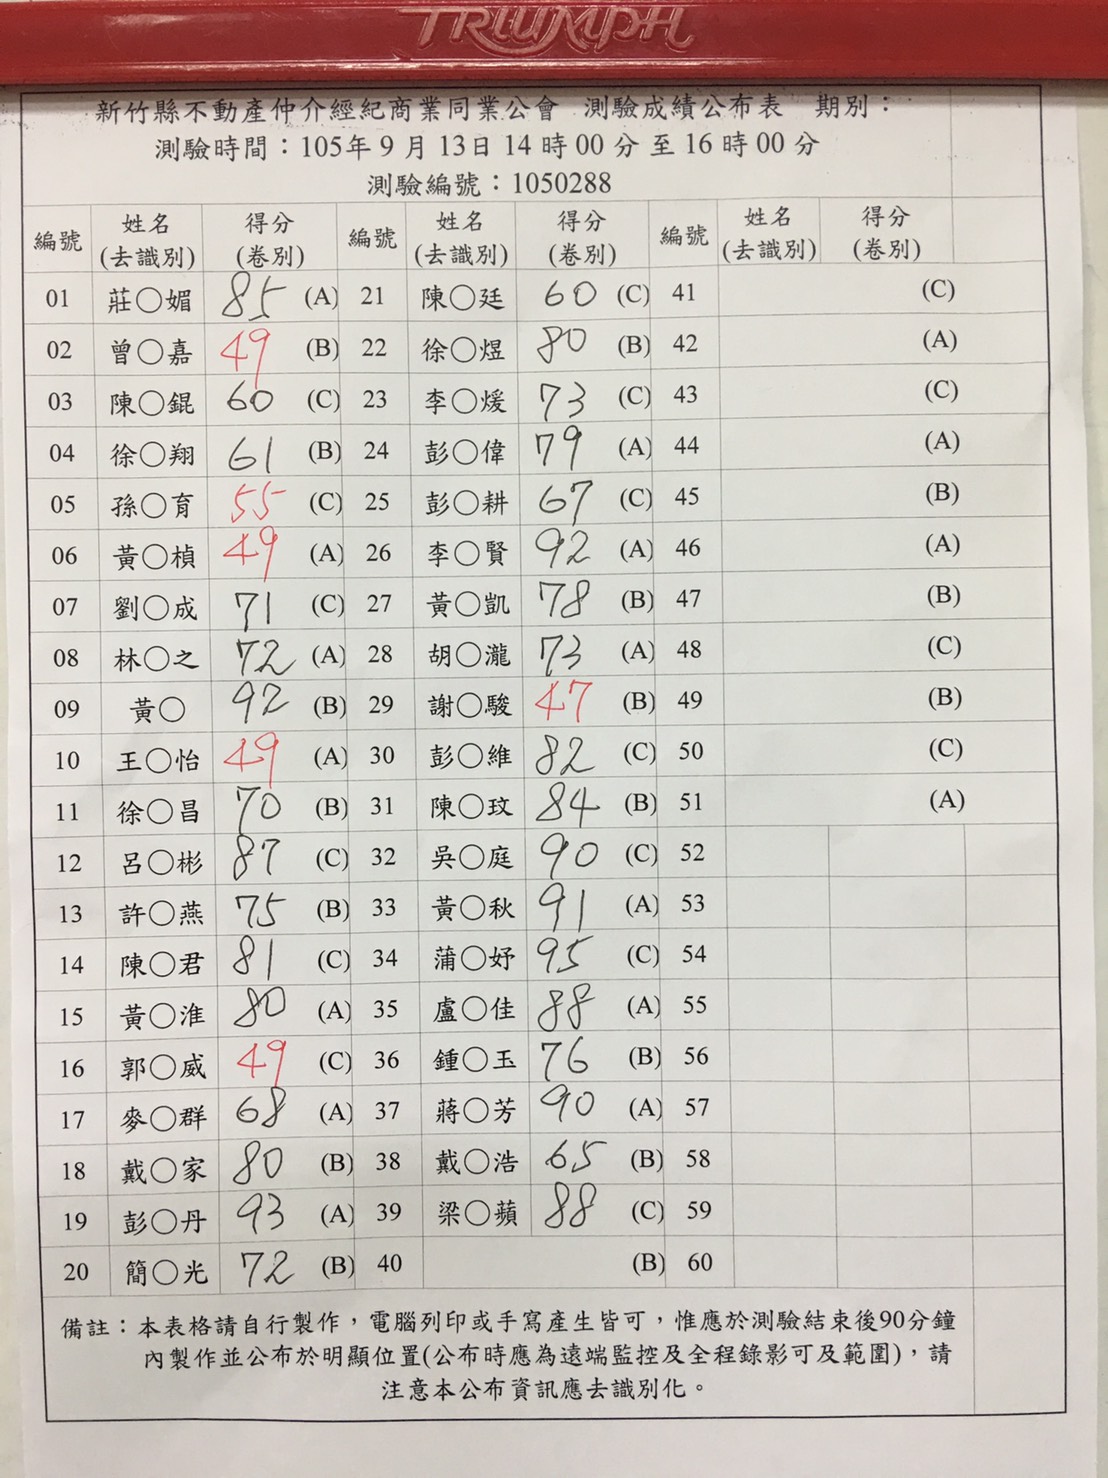 TRIUMPH
新竹縣不動產仲介經紀商業同業公會 測驗成績公布表 期別：
測驗時間：105年9月13日14時00分至16時00分
測驗編號：1050288
編號 姓名(去識別) 得分(卷別) 編號 姓名(去識別) 得分(卷別) 編號 姓名(去識別) 得分(卷別)
01 莊○媚 85 (A) 21 陳○廷 60 (C) 41 (C)
02 曾○嘉 49 (B) 22 徐○煜 80 (B) 42 (A)
03 陳○錕 60 (C) 23 李○煖 73 (C) 43 (C)
04 徐○翔 61 (B) 24 彭○偉 79 (A) 44 (A)
05 孫○育 55 (C) 25 彭○耕 67 (C) 45 (B)
06 黃○楨 49 (A) 26 李○賢 92 (A) 46 (A)
07 劉○成 71 (C) 27 黃○凱 78 (B) 47 (B)
08 林○之 72 (A) 28 胡○瀧 73 (A) 48 (C)
09 黃○ 92 (B) 29 謝○駿 47 (B) 49 (B)
10 王○怡 49 (A) 30 彭○維 82 (C) 50 (C)
11 徐○昌 70 (B) 31 陳○玟 84 (B) 51 (A)
12 呂○彬 87 (C) 32 吳○庭 90 (C) 52
13 許○燕 75 (B) 33 黃○秋 91 (A) 53
14 陳○君 81 (C) 34 蒲○妤 95 (C) 54
15 黃○淮 80 (A) 35 盧○佳 88 (A) 55
16 郭○威 49 (C) 36 鍾○玉 76 (B) 56
17 麥○群 68 (A) 37 蔣○芳 90 (A) 57
18 戴○家 80 (B) 38 戴○浩 65 (B) 58
19 彭○丹 93 (A) 39 梁○蘋 88 (C) 59
20 簡○光 72 (B) 40 (B) 60
備註：本表格請自行製作，電腦列印或手寫產生皆可，惟應於測驗結束後90分鐘
內製作並公布於明顯位置(公布時應為遠端監控及全程錄影可及範圍)，請
注意本公布資訊應去識別化。